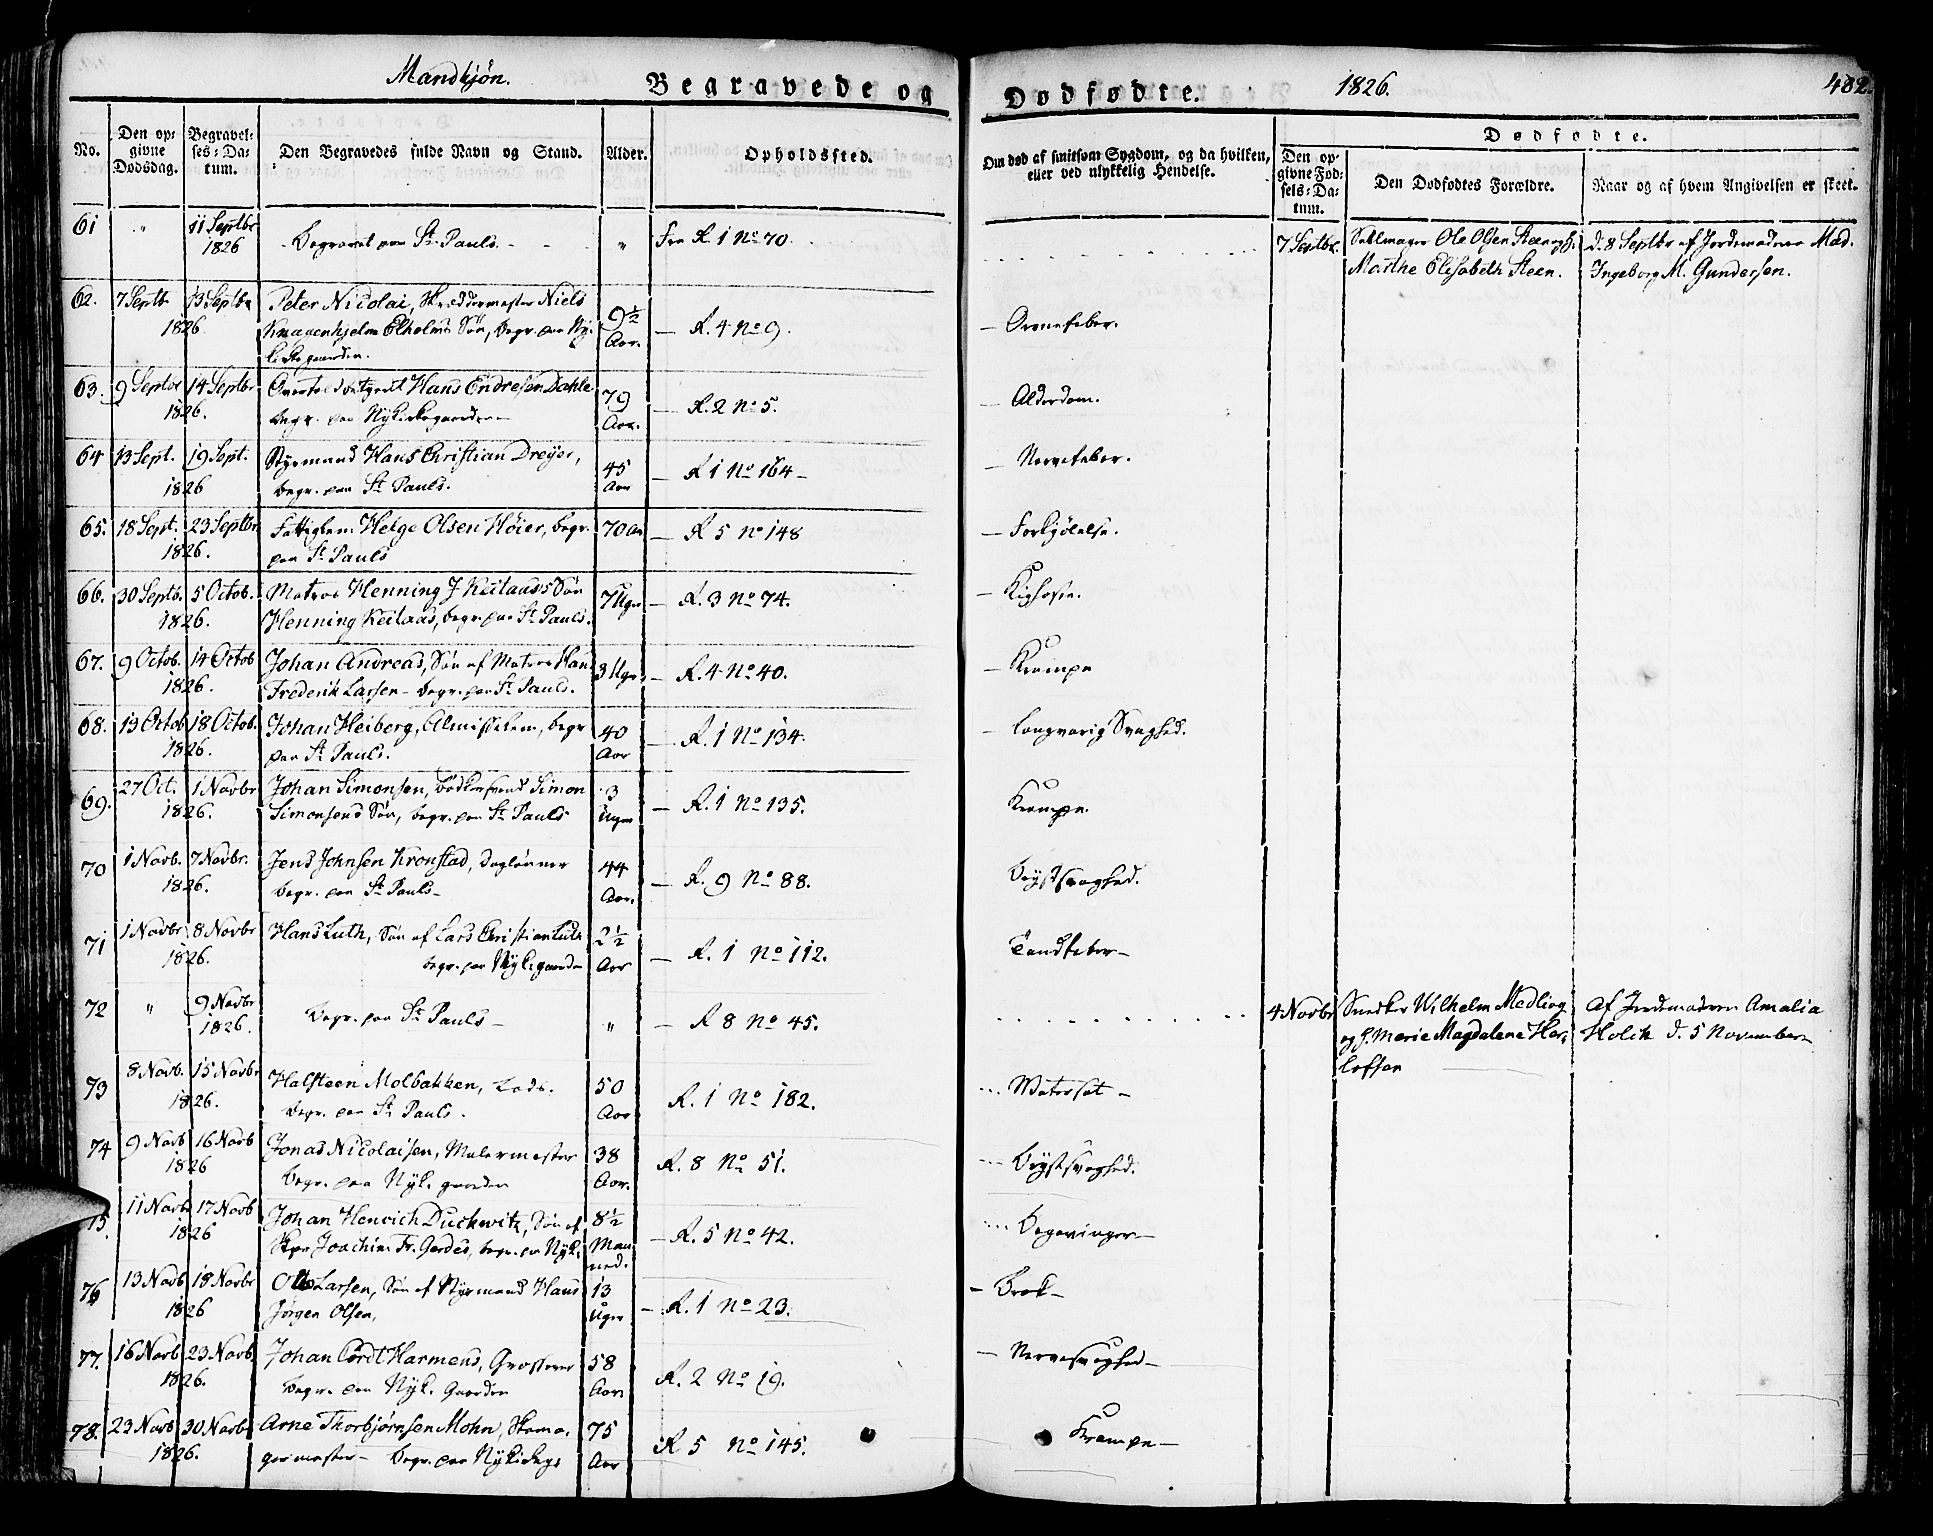 Mandkjøn.
Begravede og
Dødfødte.
1826.
482.
No.
Den op-
givne
Dødsdag.
Begravel-
ses-Da-
tum.
Den Begravedes fulde Navn og Stand.
Alder.
Opholdssted.
Om død af smitsom Sygdom, og da hvilken,
eller ved ulykkelig Hendelse.
Dødfødte.
Den op-
givne Fød-
sels-Da-
tum.
Den Dødfødtes Forældre.
Naar og af hvem Angivelsen er skeet.
61 " 11 Septbr
1826 Begravet paa St. Pauls. " Fra R. 1 No 70.
7 Septbr. Ole Olsen Steen og H. d. 8 Septbr af Jordemoderen Mad.
Marthe Elisabeth Steen. Ingeborg M. Gundersen.
62. 7 Septb 13 Septbr Peter Nicolai, Skræddermester Niels
1826. Knagenhjelm Elholms Søn, begr. paa Ny- 9½ Aar. R. 4 No 9. Ormefeber.
kirkegaarden.
63. 9 Septbr 14 Septbr Hans Endresen Dahle 79
1826. begr. paa Nykirkegaarden Aar. R. 2 No 5. Alderdom.
64 13 Sept. 19 Sept. Styrmand Hans Christian Dreyer, 45
1826 begr. paa St. Pauls. Aar R. 1 No 164 Nervefeber.
65. 18 Sept. 23 Septbr Fattiglem Helge Olsen Høier, begr. 70 Aar R 5 No 148 Forkjølelse.
1826. paa St. Pauls
66. 30 Septb. 5 Octob. Matros Henning J Keilaus Søn 7 Uger R. 3 No 74. Kighoste.
1826. Henning Keilaus, begr. paa St. Pauls.
67. 9 Octob. 14 Octob Johan Andreas, Søn af Matros Hans 3 Uger R. 4 No 40. Krampe
1826. Frederik Larsen – begr. paa St. Pauls.
68. 13 Octob 18 Octob. Johan Heiberg, Almisselem, begr 40
1826. paa St. Pauls. Aar R. 1 No 134. langvarig Svaghed.
69. 27 Oct. 1 Novbr Johan Simonsen, Bødkersvend Simon 3
1826. Simonsens Søn, begr. paa St. Pauls Uger R. 1 No 135. Krampe.
70 1 Novb. 7 Novbr. Jens Johnsen Kronstad, Daglønner 44
1826. begr. paa St. Pauls Aar. R. 9 No 88. Brystsvaghed.
71 1 Novbr 8 Novbr Hans Luth, Søn af Lars Christian Luth 2½
1826. begr. paa Nyk. gaarden Aar R. 1 No 112. Tandfeber
72 " 9 Novbr
1826. Begr. paa St. Pauls " R 8 No 45.
4 Novbr Snedker Wilhelm Madling Af Jordemoderen Amalia
og H. Merie Magdalene Her- Holck d. 5 November
lofsen
73 8 Novb. 15 Novbr Halsteen Molbakken, Lods. 50
1826. begr. paa St. Pauls. Aar R. 1 No 182. Watersot
74 9 Novb 16 Novb Jonas Nicolaisen, Malermester 38
1826 Begr. paa Nyk. gaarden Aar. R. 8 No 51. Brystsvaghed.
75. 11 Novb 17 Novb Johan Henrich Duckwitz, Søn af 8½
1826 Joachim Fr. Gerdes, begr. paa Nyk. Maa- R. 5 No 42.
ned.
76 13 Novb 18 Novbr Otto Larsen, Søn af Styrmand Hans 13
1826 Jørgen Olsen, Uger R. 1 No 23. Brok
77. 16 Novb 23 Novb. Johan Cordt Harmens, Grosserer 58
1826. begr. paa Nyk. Gaarden Aar R. 2 No 19. Nervesvaghed
78. 23 Novb 30 Novbr Arne Thorbjørnsen Mohn, Skoma- 75
1826. germester – Begr. paa Nykirkegr Aar R 5 No 145. Krampe